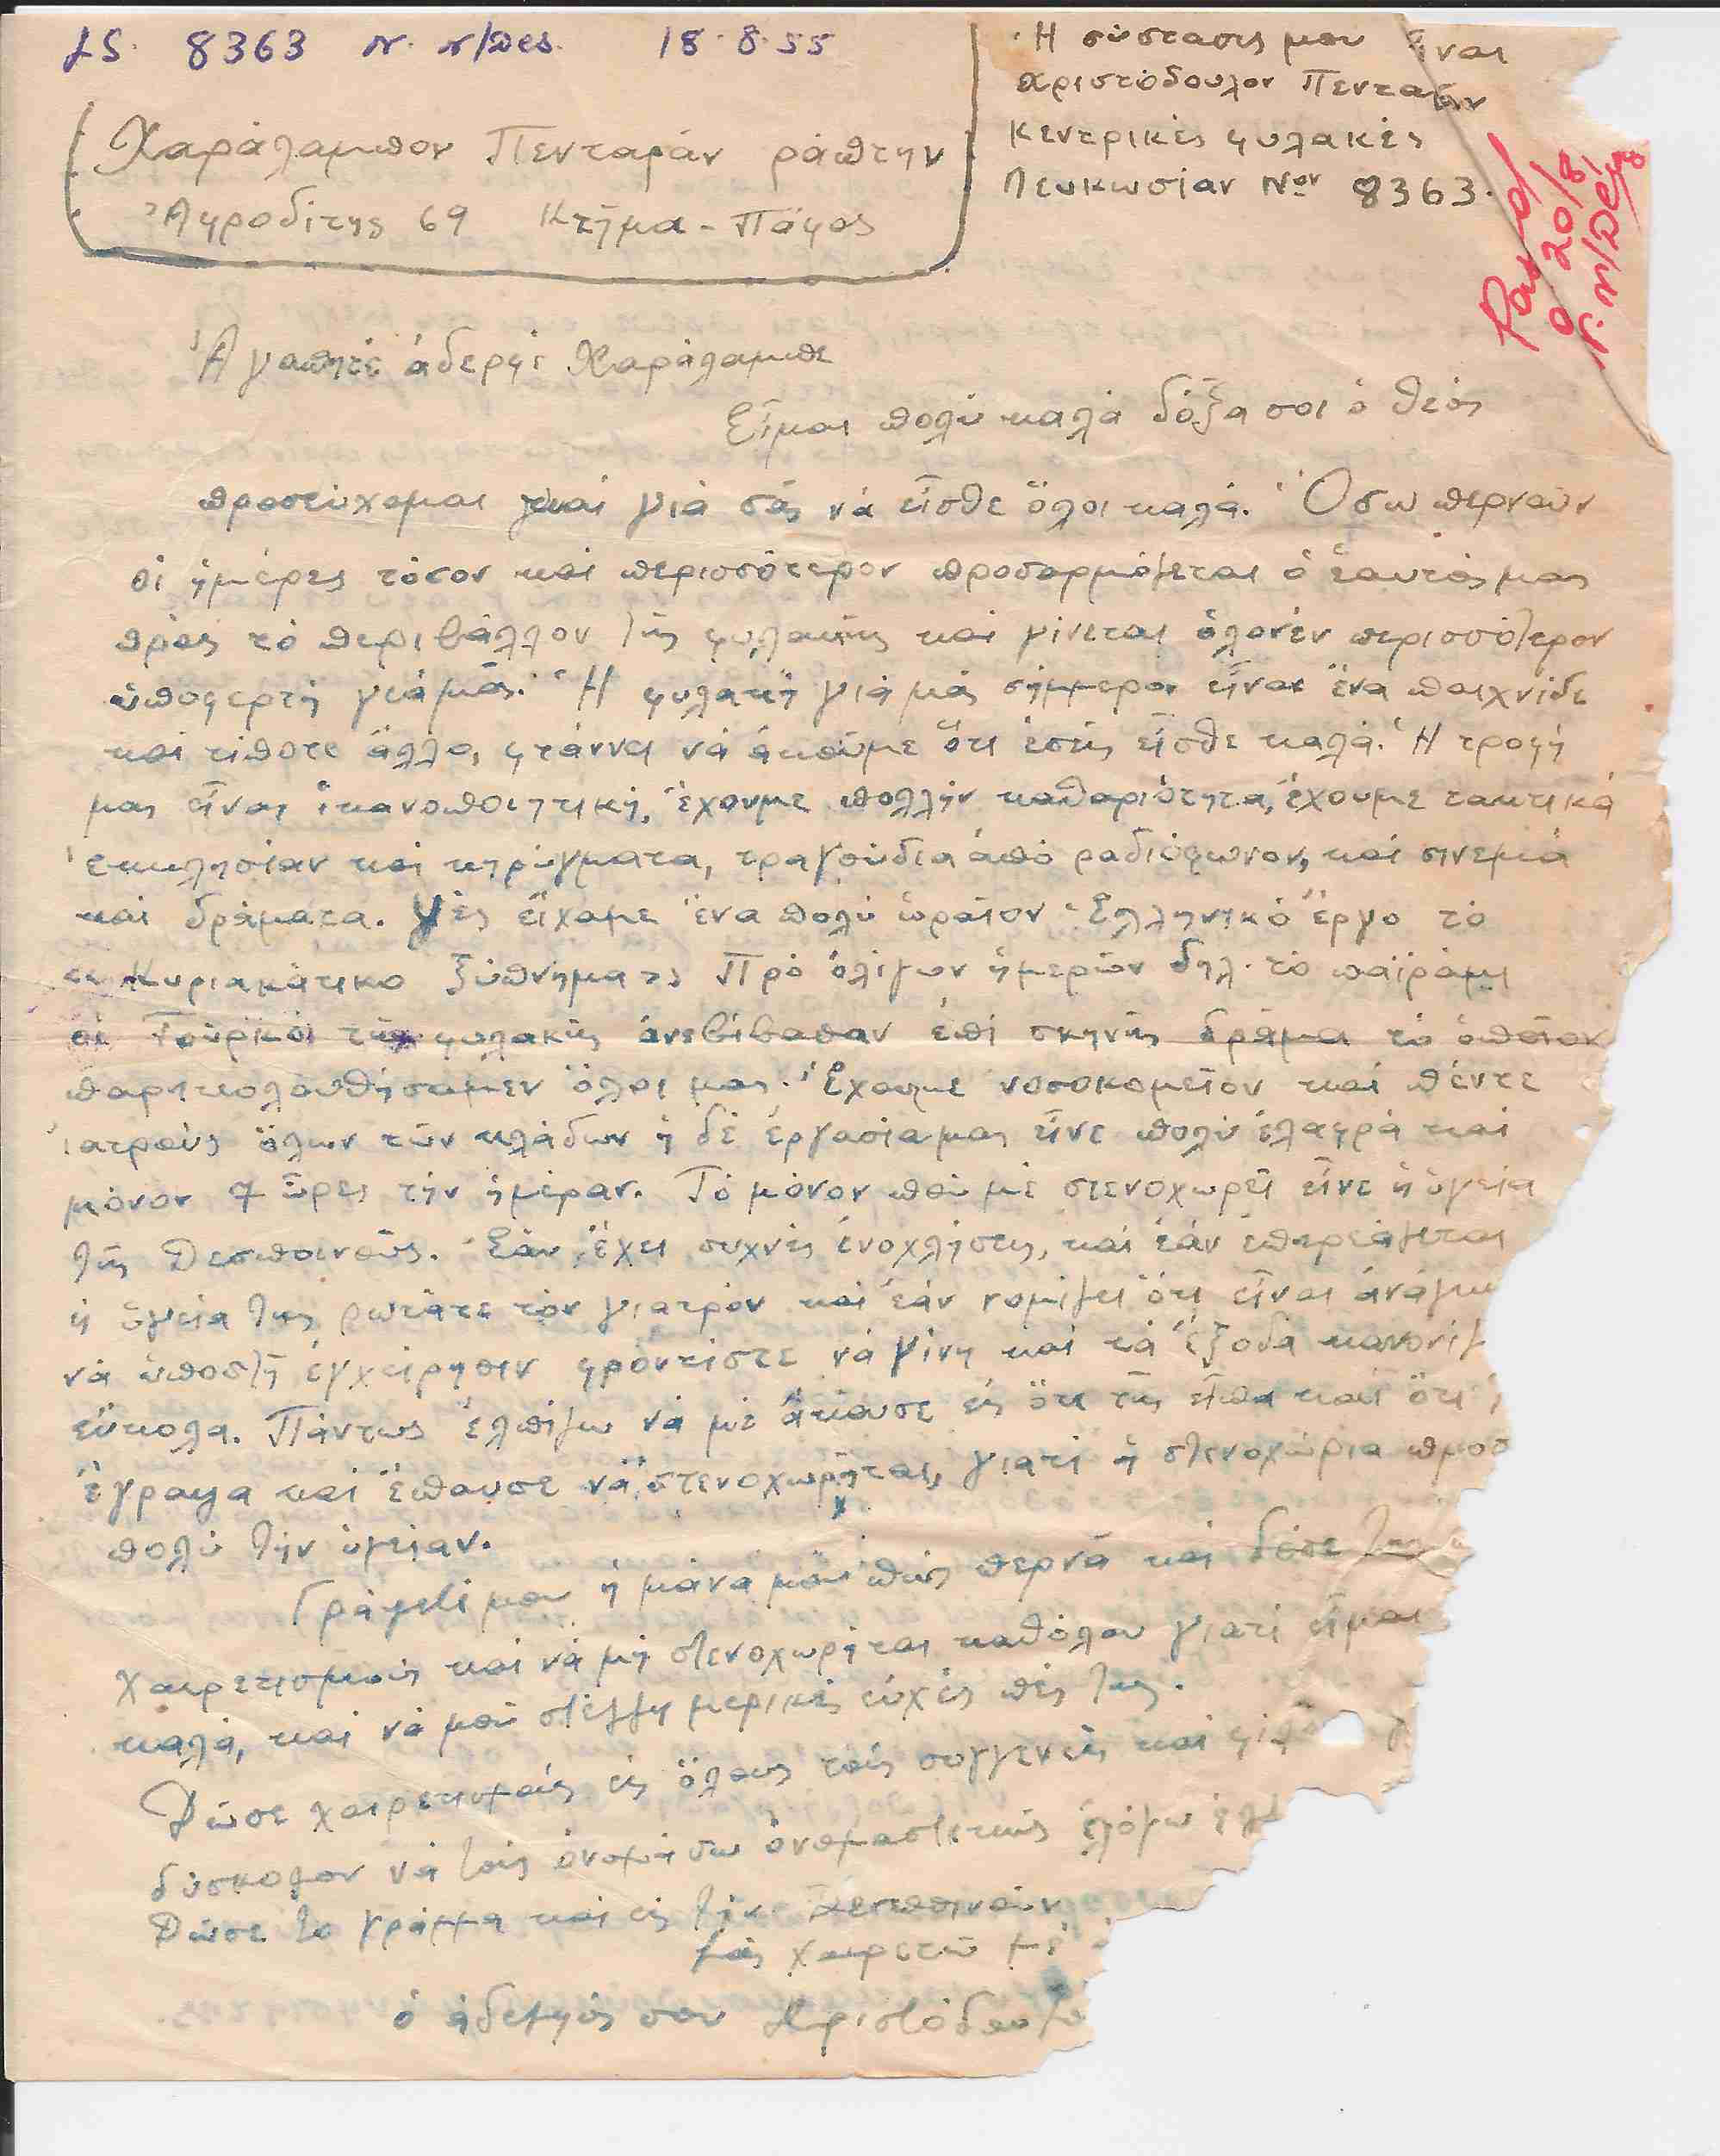 LS. 8363 18.8.55
Ἡ σύστασις μου εἶναι
Χριστόδουλον Πενταρᾶν
Κεντρικές φυλακές
Λευκωσίαν Νον 8363.
Passed
20/8
Χαράλαμπον Πενταρᾶν ράπτην
Ἀφροδίτης 69 Κτῆμα - Πάφος
Ἀγαπητέ ἀδερφέ Χαράλαμπε
Εἶμαι πολύ καλά δόξα σοι ὁ θεός
προσεύχομαι καί γιά σᾶς νά εἶσθε ὅλοι καλά. Ὅσω περνοῦν
οἱ ἡμέρες τόσον καί περισσότερον προσαρμόζεται ὁ ἑαυτός μας
πρός τό περιβάλλον τῆς φυλακῆς καί γίνεται ὁλονέν περισσότερον
ὑποφερτή γιά μᾶς. Ἡ φυλακή γιά μᾶς σήμμερον εἶναι ἕνα παιχνίδι
καί τίποτε ἄλλο, φτάννει νά ἀκοῦμε ὅτι ἐσεῖς εἶσθε καλά. Ἡ τροφή
μας εἶναι ἱκανοποιητική, ἔχουμε πολλήν καθαριότητα, ἔχουμε τακτικά
ἐκκλησίαν καί κηρύγματα, τραγούδια ἀπό ραδιόφωνον, καί σινεμά
καί δράματα. Χθές εἴχαμε ἕνα πολύ ὡραῖον Ἑλληνικό ἔργο τό
«Κυριακάτικο ξύπνημα» Πρό ὀλίγων ἡμερῶν δηλ. τό παϊράμι
οἱ Τοῦρκοι τῆς φυλακῆς ἀνεβίβασαν ἐπί σκηνῆς δρᾶμα τό ὁποῖον
παρηκολουθήσαμεν ὅλοι μας. Ἔχουμε νοσοκομεῖον καί πέντε
ἰατρούς ὅλων τῶν κλάδων ἡ δέ ἐργασία μας εἶνε πολύ ἐλαφρά καί
μόνον 7 ὧρες τήν ἡμέραν. Τό μόνον πού μέ στενοχωρεῖ εἶνε ἡ ὑγεία
τῆς Δεσποινοῦς. Ἐάν ἔχει συχνές ἐνοχλήσεις, καί ἐάν ἐπηρεάζεται
ἡ ὑγεία της ρωτᾶτε τόν γιατρόν καί ἐάν νομίζει ὅτι εἶναι ἀνάγκη
νά ὑποστῇ ἐγχείρησιν φροντίστε νά γίνη καί τά ἔξοδα κανονίζ
εὔκολα. Πάντως ἐλπίζω νά μέ ἄκουσε εἰς ὅτι τῆς εἶπα καί ὅτι
ἔγραψα καί ἔπαυσε νά στενοχωρῆται, γιατί ἡ στενοχώρια προσ
πολύ τήν ὑγείαν.
Γράψετέ μου ἡ μάνα μου πῶς περνᾶ καί δόσε της
χαιρετισμούς καί νά μή στενοχωρῆται καθόλου γιατί εἶμαι
καλά, καί νά μοῦ στέλλη μερικές εὐχές πές της.
Δῶσε χαιρετισμούς εἰς ὅλους τούς συγγενεῖς καί φίλ
δύσκολον νά τούς ὀνομάσω ὀνομαστικῶς
Δῶσε το γράμμα καί εἰς τήν Δεσποινοῦν
Σᾶς χαιρετῶ μέ
ὁ ἀδελφός σου Χριστόδουλο